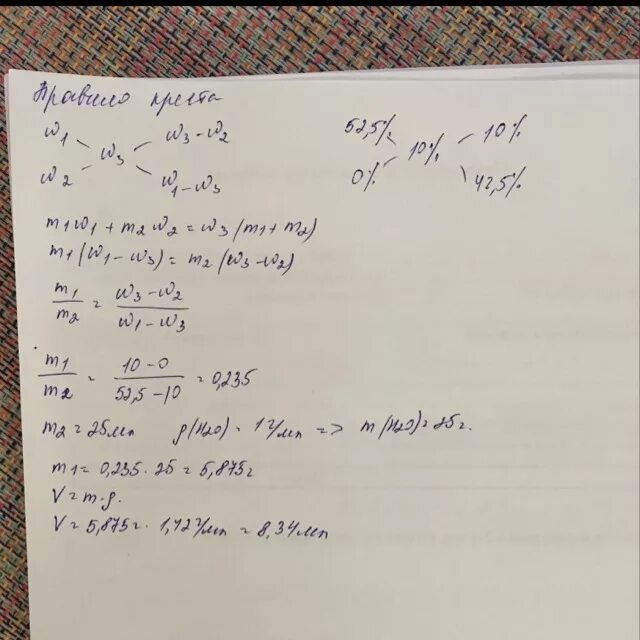 Правило креста
w1 w3 - w2
w3
w2 w1 - w3
52,5% 10%
10%
0% 42,5%
m1w1 + m2w2 = w3(m1 + m2)
m1(w1 - w3) = m2(w3 - w2)
m1/m2 = (w3 - w2)/(w1 - w3)
m1/m2 = (10 - 0)/(52,5 - 10) = 0,235
m2 = 25мл ρ(H2O) = 1г/мл => m(H2O) = 25г.
m1 = 0,235 · 25 = 5,875г
V = m·ρ.
V = 5,875г · 1,42г/мл = 8,34мл